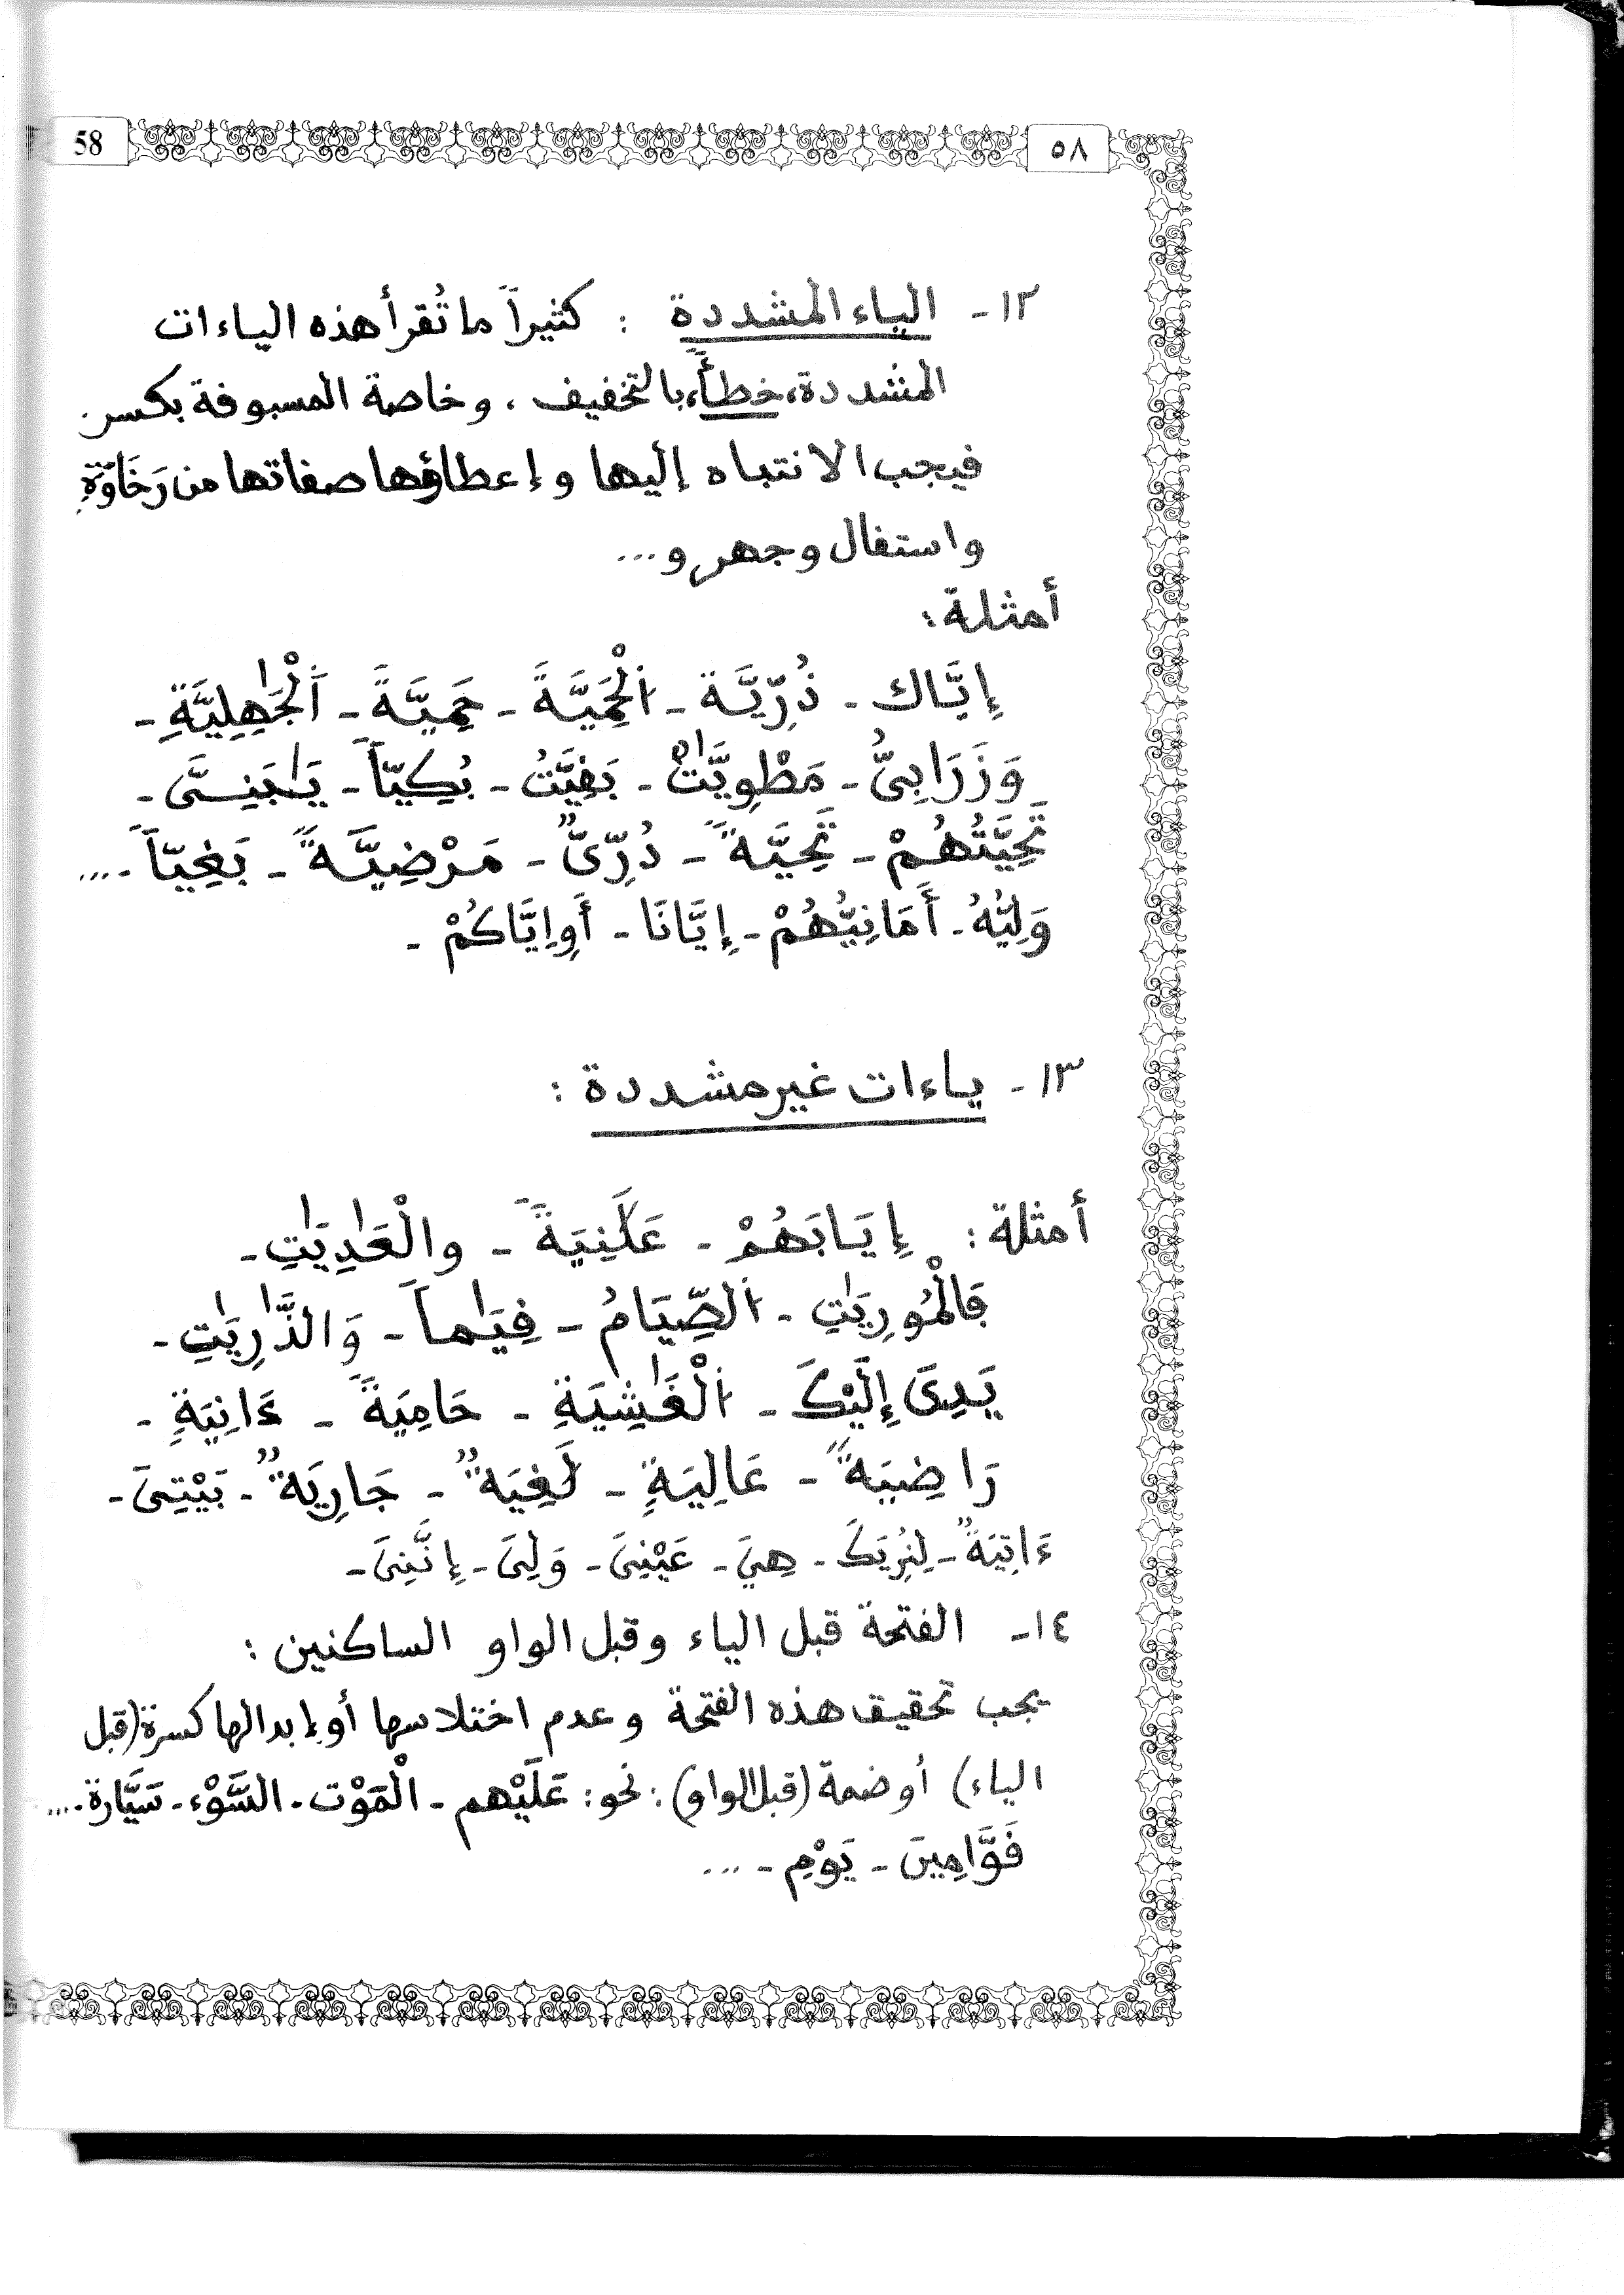 58
٥٨
١٢- الياء المشددة : كثيراً ما تُقرأ هذه الياءات
المشددة، خطأً، بالتخفيف، وخاصة المسبوقة بكسر.
فيجب الانتباه إليها وإعطاؤها صفاتها من رَخَاوَةٍ
واستفال وجهرٍ و...
أمثلة :
إِيَّاكَ - ذُرِّيَّةَ - ٱلْحَمِيَّةَ - حَمِيَّةَ - ٱلْجَٰهِلِيَّةِ -
وَزَرَابِىُّ - مَطْوِيَّٰتٌۢ - بَقِيَّتُ - بُكِيّاً - يَٰبَنِىَّ -
تَحِيَّتُهُمْ - تَحِيَّةً - دُرِّىٌّ - مَرْضِيَّةً - بَغِيّاً - ....
وَلِيُّهُ - أَمَانِيُّهُمْ - إِيَّانَا - أَوإِيَّاكُمْ -
١٣- ياءات غير مشددة :
أمثلة : إِيَابَهُمْ - عَلَٰنِيَةً - والْعَٰدِيَٰتِ -
فَالْمُورِيَٰتِ - ٱلصِّيَامُ - قِيَٰماً - وَالذَّٰرِيَٰتِ -
يَدِىَ إِلَيْكَ - ٱلْغَٰشِيَةِ - حَامِيَةً - ءَانِيَةٍ -
رَاضِيَةً - عَالِيَةٍ - لَٰغِيَةً - جَارِيَةٌ - بَيْتِىَ -
ءَاتِيَةٌ - لِنُرِيَكَ - هِيَ - عَيْنِىَ - وَلِىَ - إِنَّنِىَ -
١٤- الفتحة قبل الياء وقبل الواو الساكنين :
يجب تحقيق هذه الفتحة وعدم اختلاسها أو إبدالها كسرة (قبل
الياء) أو ضمة (قبل الواو) : نحو : عَلَيْهم - الْمَوْت - السَّوْء - سَيَّارة - ....
قَوَّامِين - يَوْمِ - ...